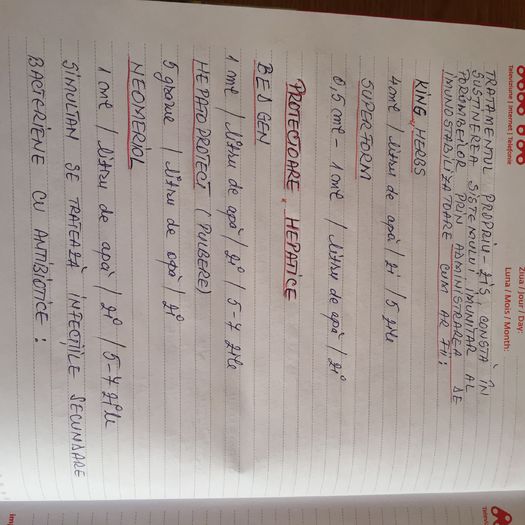 Televiziune | Internet | Telefonie
Ziua / Jour / Day:
Luna / Mois / Month:
TRATAMENTUL PROPRIU-ZIS, CONSTĂ ÎN
SUSȚINEREA SISTEMULUI IMUNITAR AL
PORUMBEILOR PRIN ADMINISTRAREA DE
IMUNOSTABILIZATOARE CUM AR FII:
KING HERBS
4 ml / litru de apă / zi / 5 zile
SUPERFORM
0,5 ml - 1 ml / litru de apă / zi
PROTECTOARE HEPATICE
BEDGEN
1 ml / litru de apă / zi / 5-7 zile
HEPATOPROTECT (PULBERE)
5 grame / litru de apă / zi
NEOMERIOL
1 ml / litru de apă / zi / 5-7 zile
SIMULTAN SE TRATEAZĂ INFECȚIILE SECUNDARE
BACTERIENE CU ANTIBIOTICE: